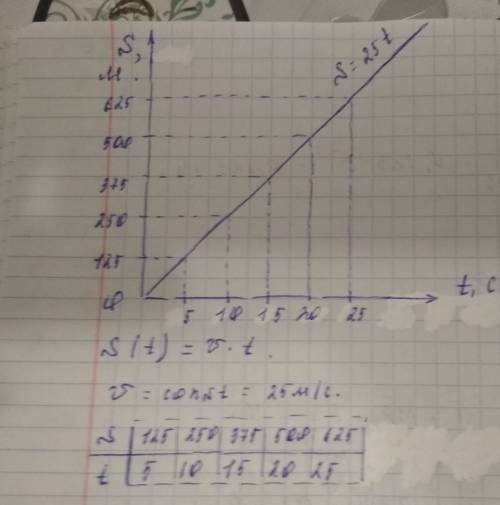 S,
м
S = 25t
625
500
375
250
125
0
5 10 15 20 25
t, c
S(t) = v · t.
v = const = 25м/с.
S 125 250 375 500 625
t 5 10 15 20 25